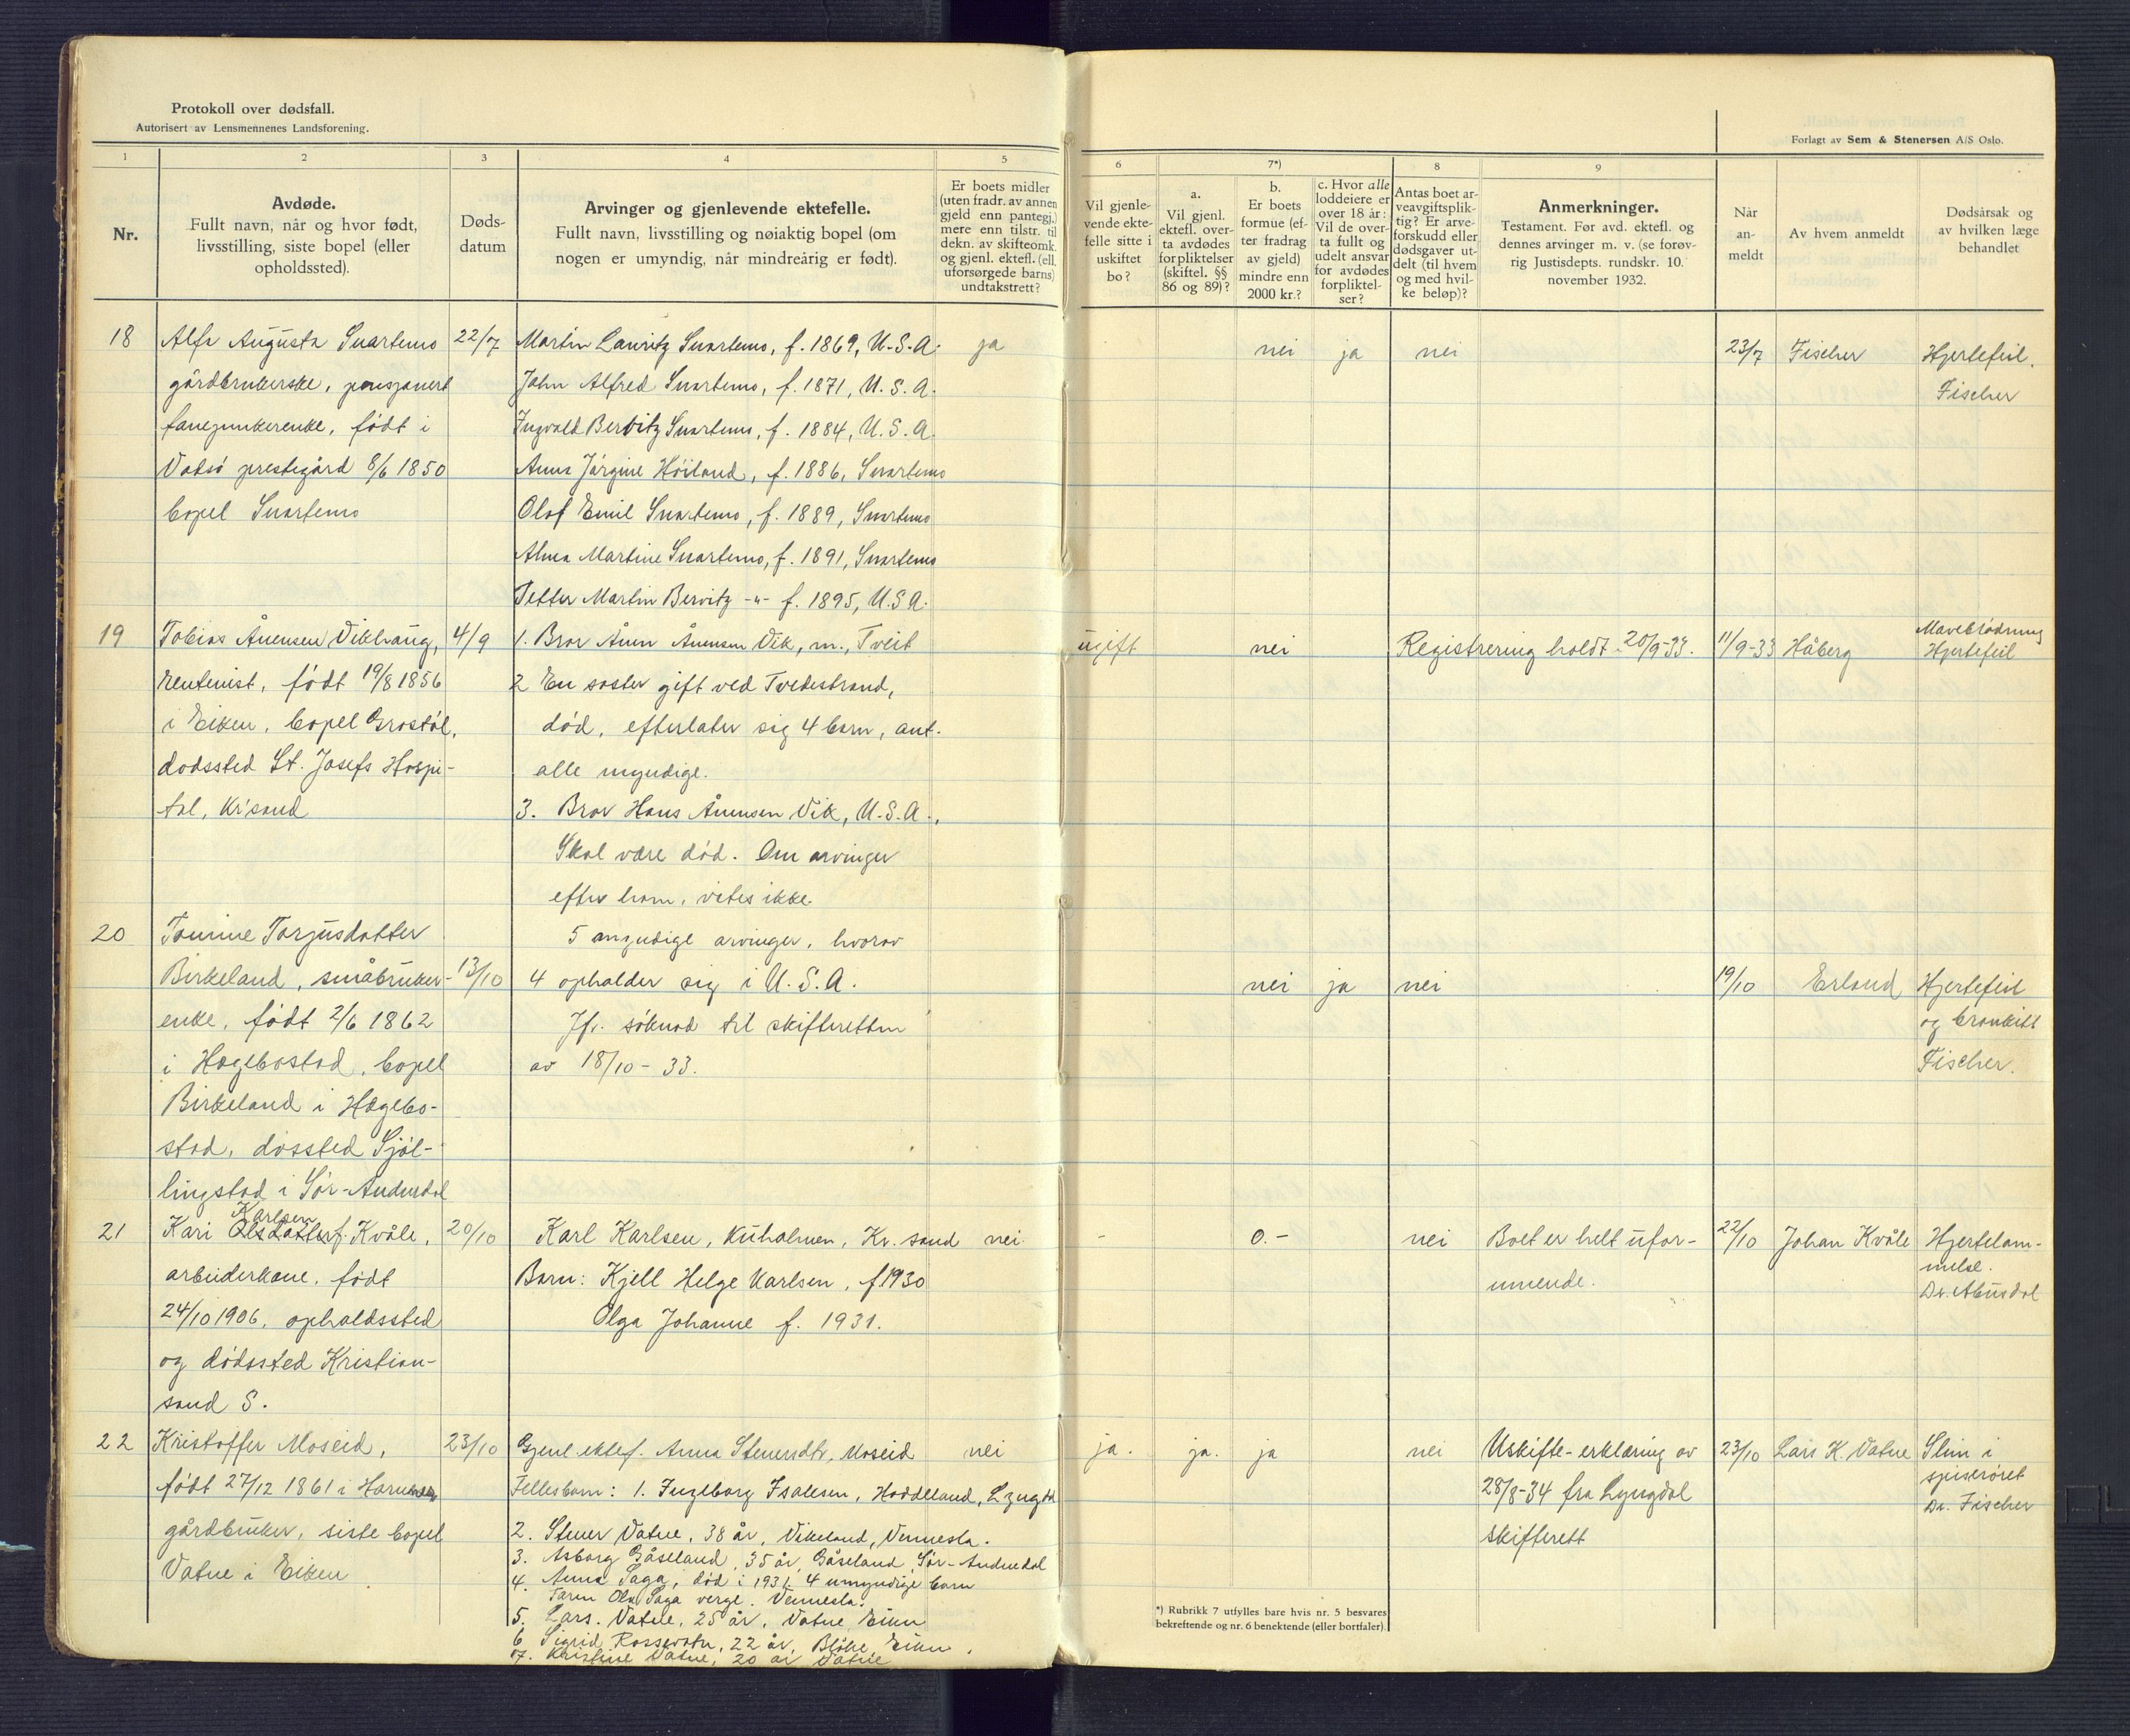 Protokoll over dødsfall.
Autorisert av Lensmennenes Landsforening.
Forlagt av Sem & Stenersen A/S Oslo.
1
2
3
4
5
6
7*)
8
9
Nr.
Avdøde.
Fullt navn, når og hvor født,
livsstilling, siste bopel (eller
opholdssted).
Døds-
datum
Arvinger og gjenlevende ektefelle.
Fullt navn, livsstilling og nøiaktig bopel (om
nogen er umyndig, når mindreårig er født).
Er boets midler
(uten fradr. av annen
gjeld enn pantegj.)
mere enn tilstr. til
dekn. av skifteomk.
og gjenl. ektefl. (ell.
uforsørgede barns)
undtakstrett?
Vil gjenle-
vende ekte-
felle sitte i
uskiftet
bo?
a.
Vil gjenl.
ektefl. over-
ta avdødes
forpliktelser
(skiftel. §§
86 og 89)?
b.
Er boets
formue (ef-
ter fradrag
av gjeld)
mindre enn
2000 kr.?
c. Hvor alle
loddeiere er
over 18 år:
Vil de over-
ta fullt og
udelt ansvar
for avdødes
forpliktel-
ser?
Antas boet ar-
veavgiftsplik-
tig? Er arve-
forskudd eller
dødsgaver ut-
delt (til hvem
og med hvil-
ke beløp)?
Anmerkninger.
Testament. Før avd. ektefl. og
dennes arvinger m. v. (se forøv-
rig Justisdepts. rundskr. 10.
november 1932.
Når
an-
meldt
Av hvem anmeldt
Dødsårsak og
av hvilken læge
behandlet
18
Alfa Augusta Snartemo
gårdbrukerske, pensjonert
fanejunkerenke, født i
Vadsø prestegård 8/6 1850
bopel Snartemo
22/7
Martin Lauritz Snartemo, f. 1869, U.S.A.
John Alfred Snartemo, f. 1871, U.S.A.
Ingvald Bervitz Snartemo, f. 1884, U.S.A.
Anna Jørgine Høiland, f. 1886, Snartemo
Olaf Emil Snartemo, f. 1889, Snartemo
Alma Martine Snartemo, f. 1891, Snartemo
Petter Martin Bervitz -"- f. 1895, U.S.A.
ja
nei
ja
nei
23/7
Fischer
Hjertefeil.
Fischer
19
Tobias Ånensen Vikhaug,
rentenist, født 19/8 1856
i Eiken, bopel Grostøl,
dødssted St. Josefs Hospi-
tal, Kr'sand
4/9
1. Bror Ånen Ånensen Vik, m., Tveit
2 En søster gift ved Tvedestrand,
død, efterlater sig 4 barn, ant.
alle myndige.
3. Bror Hans Ånensen Vik, U.S.A.,
Skal være død. Om arvinger
efter ham, vites ikke.
ugift
nei
Registrering holdt 20/9-33.
11/9-33
Håberg
Maveblødning
Hjertefeil
20
Tomine Torjusdatter
Birkeland, småbruker-
enke, født 2/6 1862
i Hægebostad, bopel
Birkeland i Hægebo-
stad, døssted Sjøl-
lingstad i Sør-Audnedal
13/10
5 myndige arvinger, hvorav
4 opholder sig i U.S.A.
Jfr. søknad til skifteretten
av 18/10 - 33.
nei
ja
nei
19/10
Erland
Hjertefeil
og bronkitt
Fischer.
21
Karlsen
Kari Olsdatter f. Kvåle,
arbeiderkone, født
24/10 1906, opholdssted
og dødssted Kristian-
sand S.
20/10
Karl Karlsen, Kuholmen, Kr. sand
Barn: Kjell Helge Karlsen, f 1930
Olga Johanne f. 1931.
nei.
-
0.-
nei
Boet er helt ufor-
muende.
22/10
Johan Kvåle
Hjertelam-
melse.
Dr. Abusdal
22
Kristoffer Moseid,
født 27/12 1861 i
gårdbruker, siste bopel
Vatne i Eiken
23/10
Gjenl. ektef. Anna Steinersdtr. Moseid
Fellesbarn: 1. Ingeborg Isaksen, Haddeland, Lyngdal
2. Stener Vatne, 38 år, Vikeland, Vennesla.
3. Asborg Gåseland, 35 år, Gåseland, Sør-Audnedal
4. Anna Saga, død i 1931. 4 umyndige barn
Faren Ola Saga verge. Vennesla.
5. Lars Vatne, 25 år, Vatne, Eiken
6 Sigrid Rossevatn, 22 år, Eiken.
7. Kristine Vatne, 20 år Vatne
nei
ja.
ja.
ja
nei
Uskifte-erklæring av
28/8-34 fra Lyngdal
skifterett
23/10
Lars K. Vatne
Slim i
spiserøret
Dr. Fischer
*) Rubrikk 7 utfylles bare hvis nr. 5 besvares
bekreftende og nr. 6 benektende (eller bortfaler).